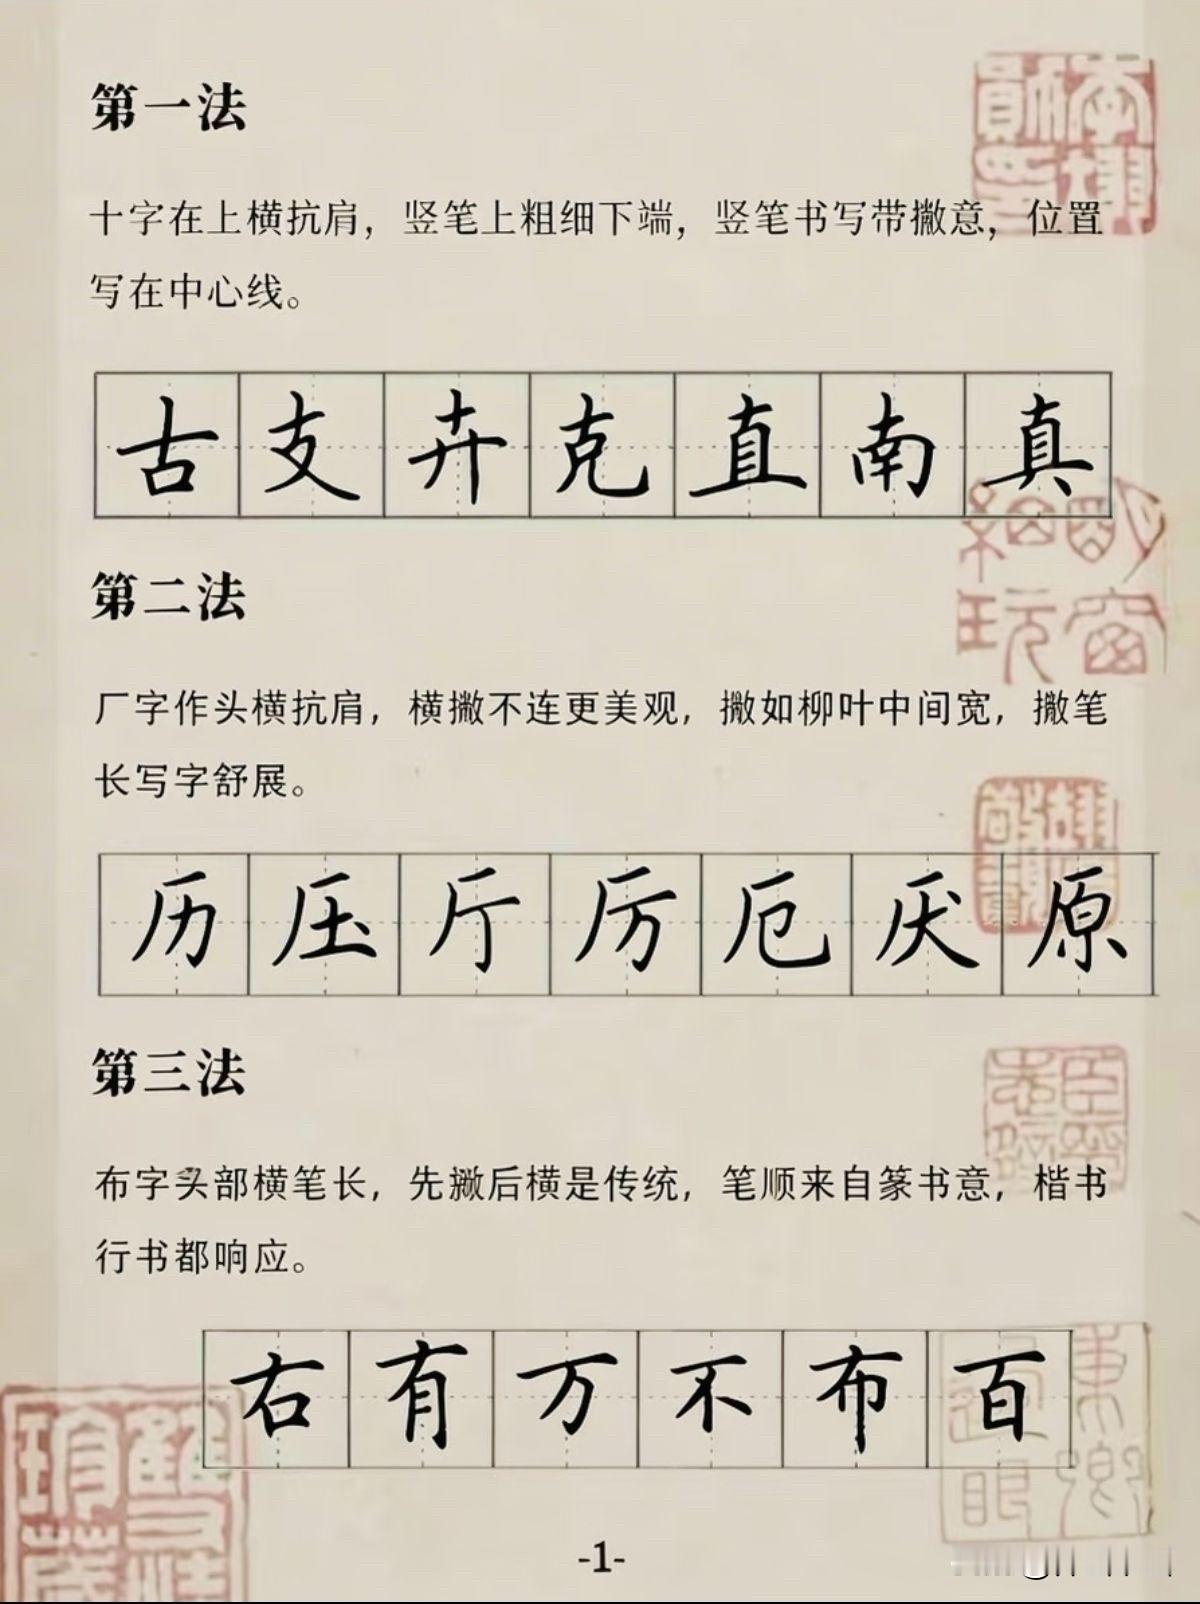 第一法
十字在上横抗肩，竖笔上粗细下端，竖笔书写带撇意，位置
写在中心线。
古支卉克直南真
第二法
厂字作头横抗肩，横撇不连更美观，撇如柳叶中间宽，撇笔
长写字舒展。
历压厅厉厄厌原
第三法
布字头部横笔长，先撇后横是传统，笔顺来自篆书意，楷书
行书都响应。
右有万不布百
-1-